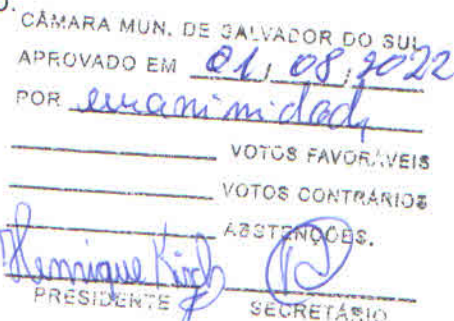 O.
CÂMARA MUN. DE SALVADOR DO SUL
APROVADO EM 01 / 08 / 2022
POR unanimidade
VOTOS FAVORÁVEIS
VOTOS CONTRÁRIOS
ABSTENÇÕES.
Henrique Kirch
PRESIDENTE SECRETÁRIO